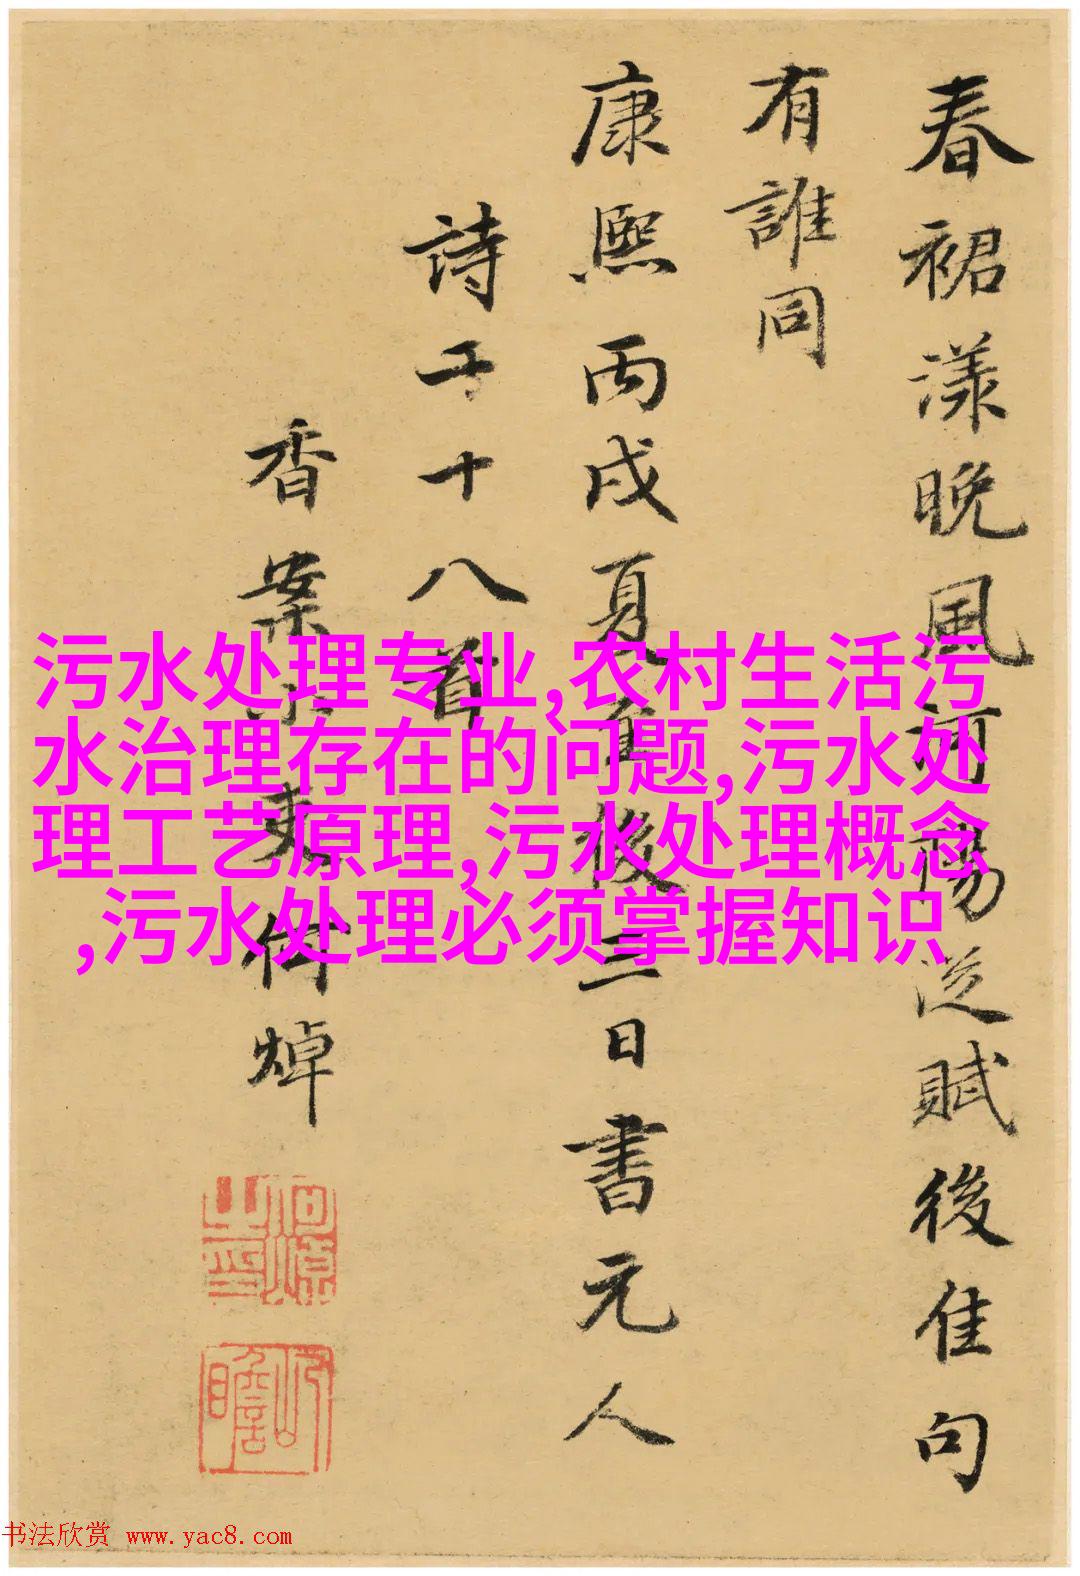 春裙漾晚風賦後佳句
有誰同
康熙丙戌夏至後三日書元人
詩十八首
香案小吏何焯
何焯之印
屺瞻
污水处理专业,农村生活污
水治理存在的问题,污水处
理工艺原理,污水处理概念
,污水处理必须掌握知识
书法欣赏 www.yac8.com